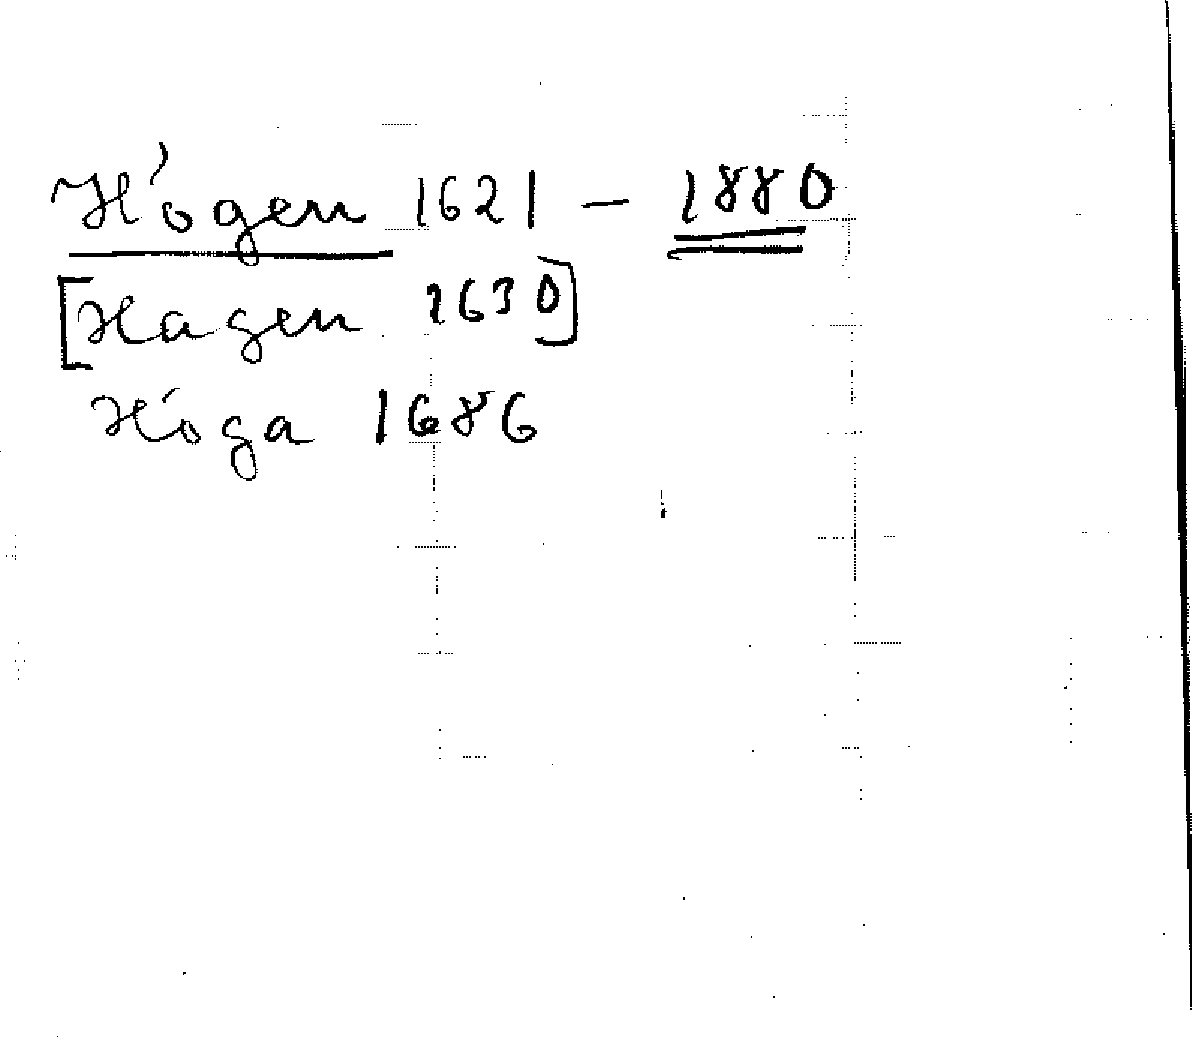 Hógen 1621 – 1880
[Hagen 1630]
Hóga 1686